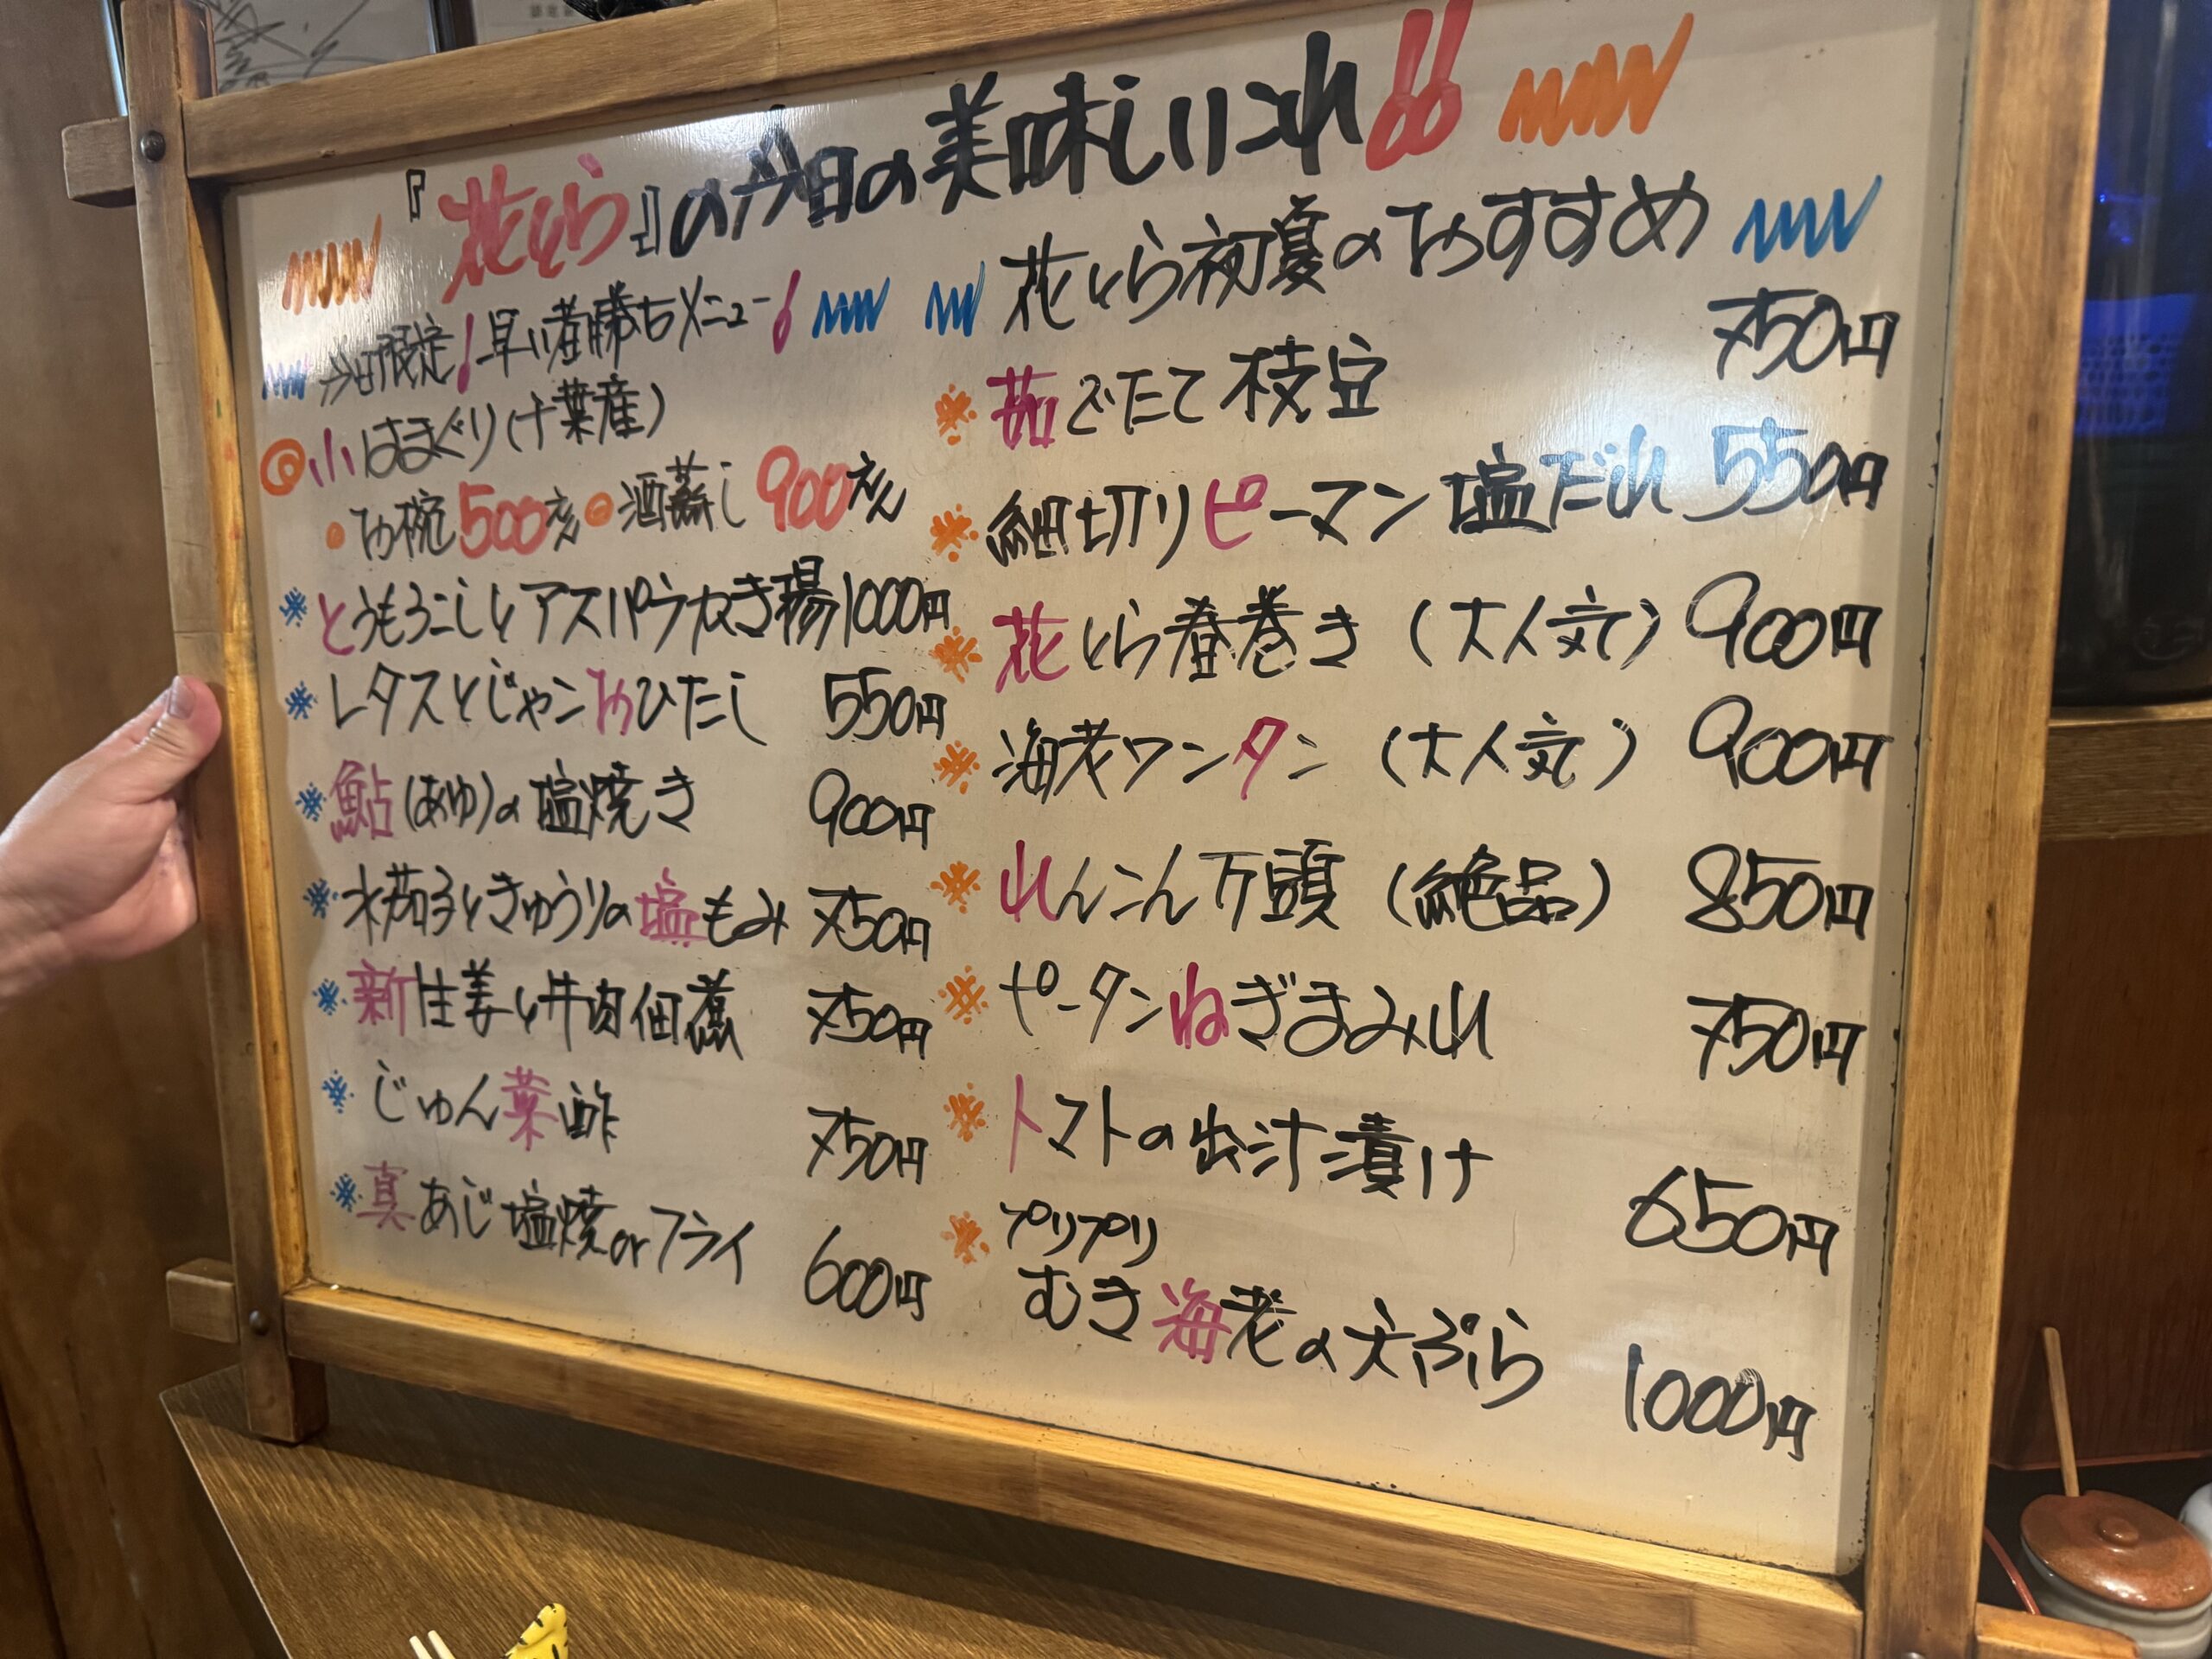 『花とら』の今日の美味しいこれ!!
今日限定!早い者勝ちメニュー!
◎小はまぐり(千葉産)
●お椀500えん ●酒蒸し900えん
※とうもろこしとアスパラかき揚 1000円
※レタスとじゃこおひたし 550円
※鮎(あゆ)の塩焼き 900円
※水茄子ときゅうりの塩もみ 750円
※新生姜と牛肉佃煮 750円
※じゅん菜酢 750円
※真あじ塩焼orフライ 600円
花とら初夏のおすすめ
※茹でたて枝豆 750円
※細切りピーマン塩だれ 550円
※花とら春巻き(大人気) 900円
※海老ワンタン(大人気) 900円
※れんこん万頭(絶品) 850円
※ピータンねぎまみれ 750円
※トマトの出汁漬け 650円
※プリプリ
むき海老の天ぷら 1000円